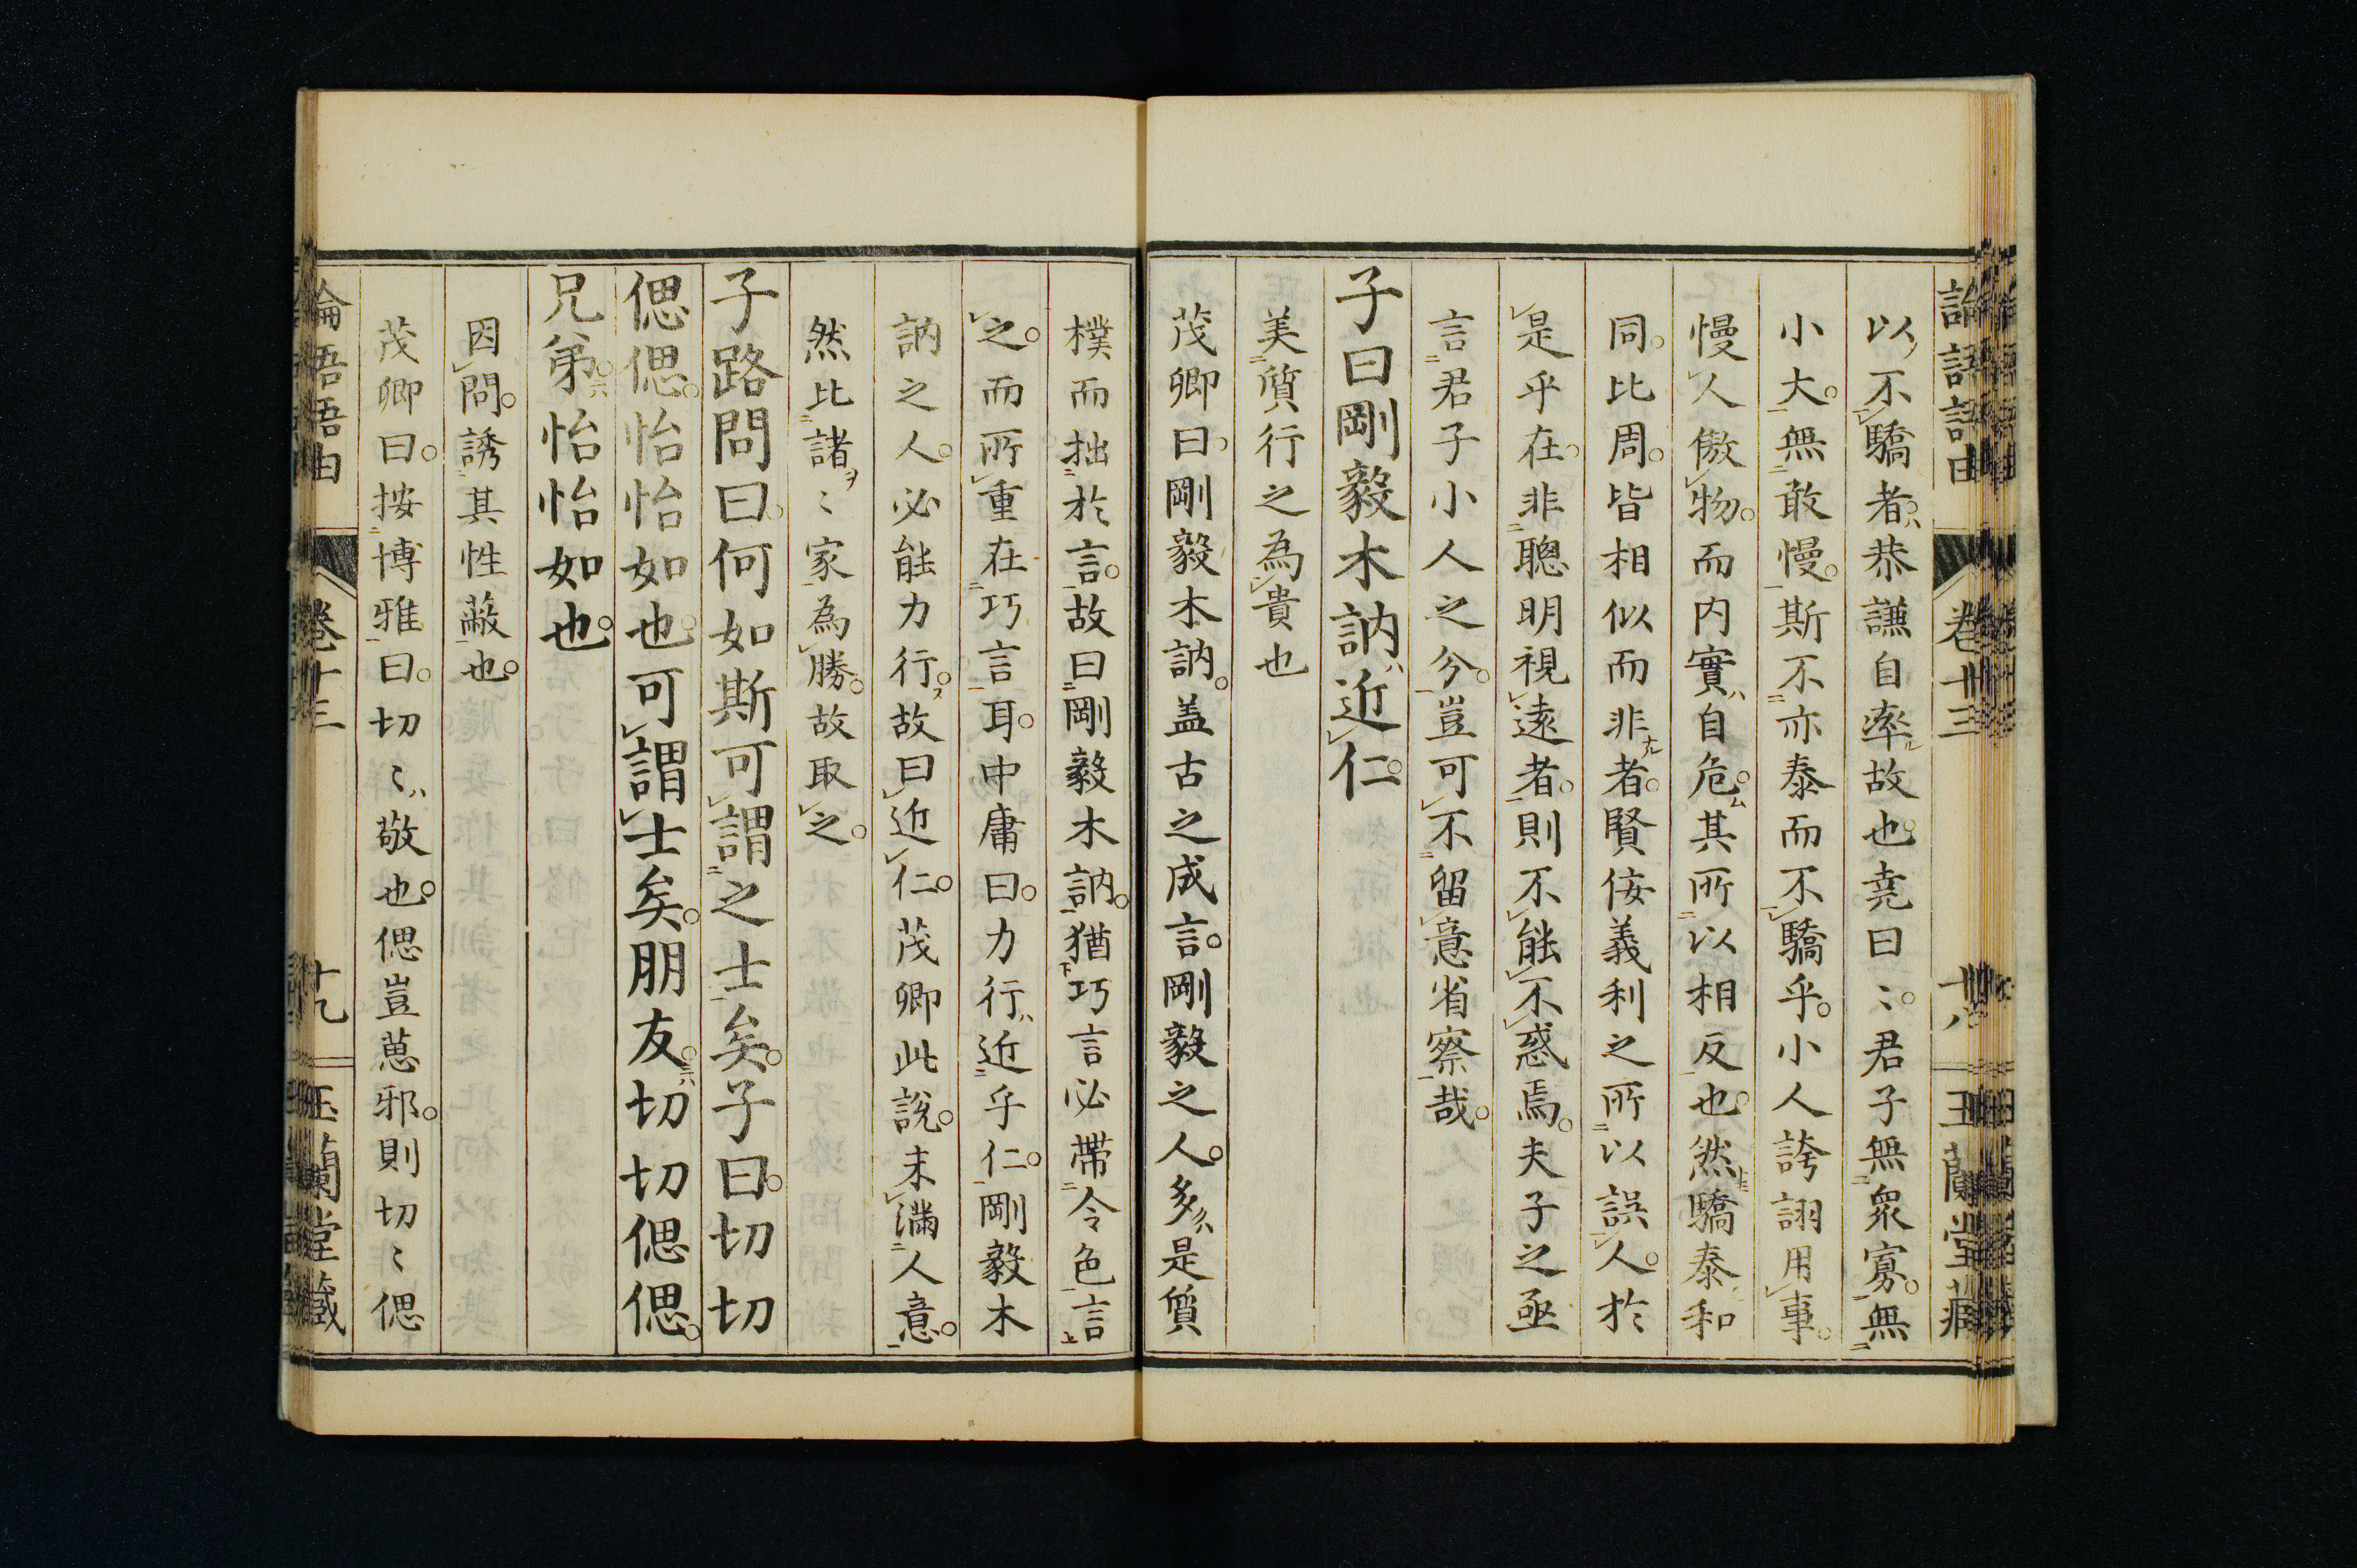 以不驕者恭謙自率故也堯曰〻君子無衆寡無
小大無敢慢斯不亦泰而不驕乎小人誇詡用事
慢人傲物而内實自危其所以相反也然驕泰和
同比周皆相似而非者賢佞義利之所以誤人於
是乎在非聰明視遠者則不能不惑焉夫子之亟
言君子小人之分豈可不留意省察哉
子曰剛毅木訥近仁
美質行之為貴也
茂卿曰剛毅木訥盖古之成言剛毅之人多是質
樸而拙於言故曰剛毅木訥猶巧言必帶令色言
之而所重在巧言耳中庸曰力行近乎仁剛毅木
訥之人必能力行故曰近仁茂卿此說未滿人意
然比諸〻家為勝故取之
子路問曰何如斯可謂之士矣子曰切切
偲偲怡怡如也可謂士矣朋友切切偲偲
兄弟怡怡如也
因問誘其性蔽也
茂卿曰按博雅曰切〻敬也偲豈葸邪則切〻偲
論語語由 卷十三 十八 玉蘭堂藏
論語語由 卷十三 十九 玉蘭堂藏